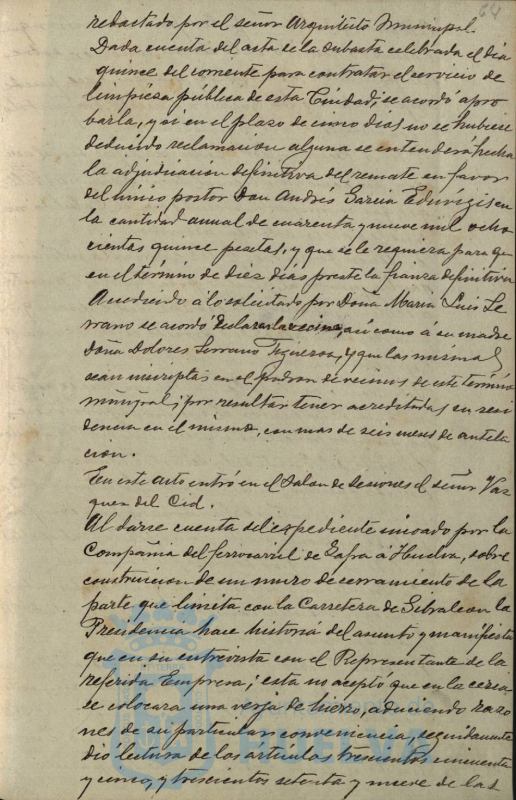 64
redactado por el señor Arquitecto Municipal.
Dada cuenta del acta de la subasta celebrada el dia
quince del corriente para contratar el servicio de
limpieza pública de esta Ciudad, se acordó apro
barla, y si en el plazo de cinco dias no se hubiese
deducido reclamacion alguna se entenderá hecha
la adjudicacion definitiva del remate en favor
del único postor Don Andrés Garcia en
la cantidad anual de cuarenta y nueve mil ocho
cientas quince pesetas, y que se le requiera para que
en el término de diez dias preste la fianza definitiva
Accediendo á lo solicitado por Doña Maria Luis Se
rrano se acordó declararla vecina, asi como á su madre
Doña Dolores Serrano Figueroa, y que las mismas
sean inscriptas en el padron de vecinos de este término
municipal; por resultar tener acreditadas su resi
dencia en el mismo, con mas de seis meses de antela
cion.
En este acto entró en el Salon de Sesiones el señor Vaz
quez del Cid.
Al darse cuenta del expediente incoado por la
Compañia del ferrocarril de Zafra á Huelva, sobre
construccion de un muro de cerramiento de la
parte que limita con la Carretera de Gibraleon la
Presidencia hace historia del asunto y manifiesta
que en su entrevista con el Representante de la
referida Empresa; esta no aceptó que en la cerca
se colocara una verja de hierro, aduciendo razo
nes de su particular conveniencia, seguidamente
dió lectura de los artículos trescientos cincuenta
y cinco, y trescientos setenta y nueve de las